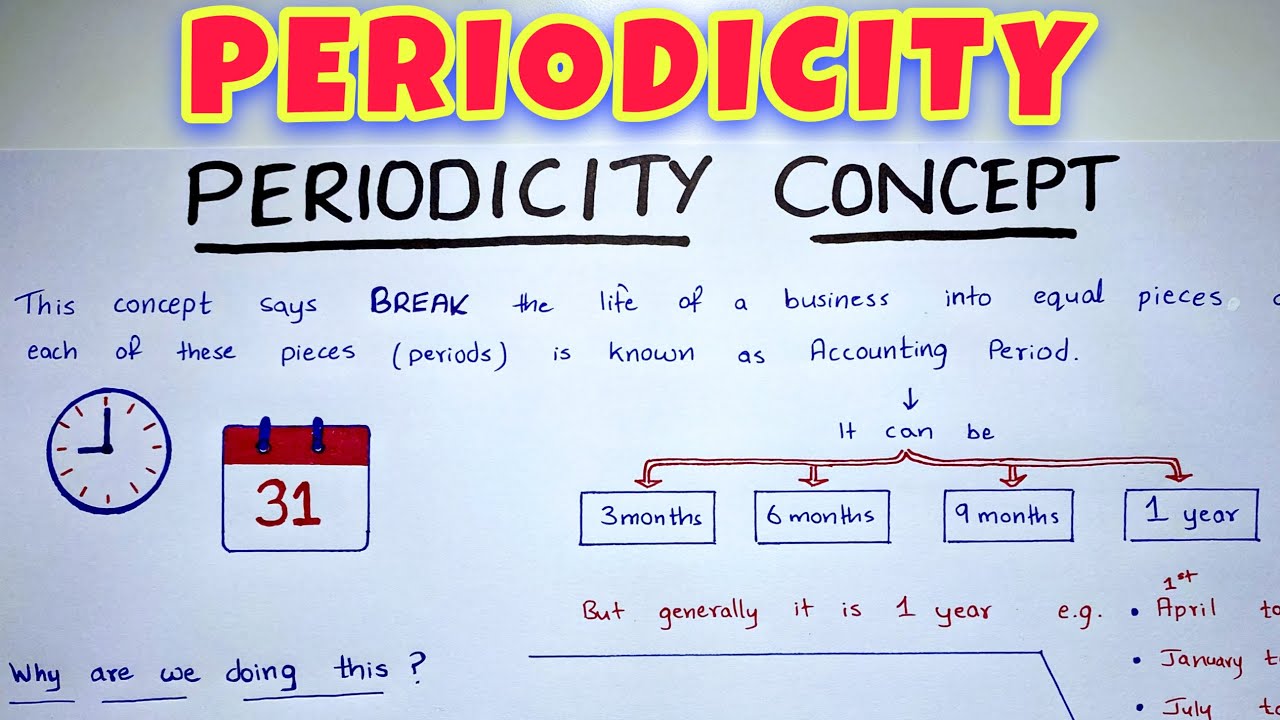 PERIODICITY
PERIODICITY CONCEPT
This concept says BREAK the life of a business into equal pieces
each of these pieces (periods) is known as Accounting Period.
It can be
31
3 months 6 months 9 months 1 year
But generally it is 1 year e.g. • 1st April to
• January t
Why are we doing this?
• July to